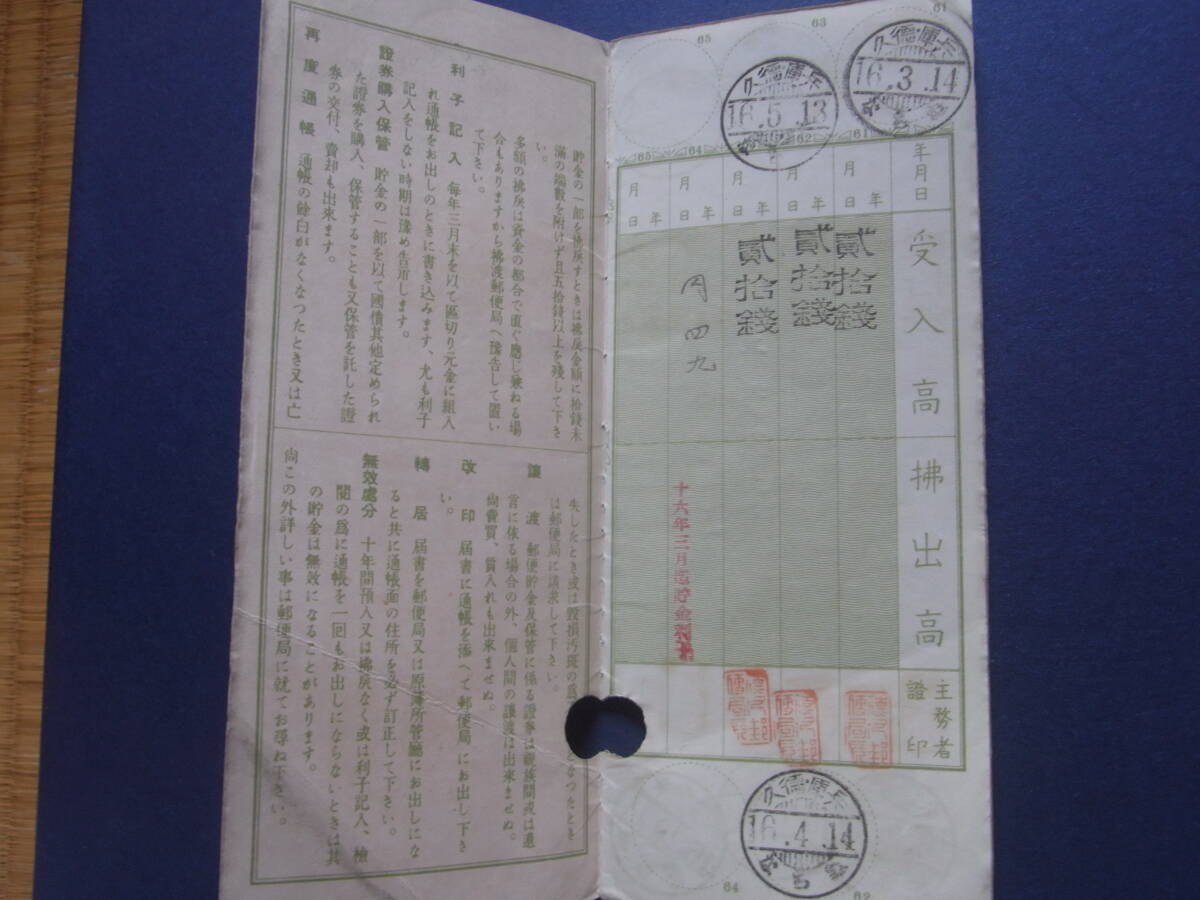 61
63
65
兵庫・徳久
16.3.14
兵庫・徳久
16.5.13
65
64
62
61
年月日
受入高
拂出高
主務者證印
年月日
貳拾錢
年月日
貳拾錢
年月日
貳拾錢
年月日
円四九
十六年三月迄貯金利子
年月日
兵庫・徳久
16.4.14
64
62
貯金の一部を拂戻すときは拂戻金額に拾錢未
滿の端數を附けず且五拾錢以上を殘して下さ
い。
多額の拂戻は資金の都合で直ぐ應じ兼ねる場
合もありますから拂渡郵便局へ豫告して置い
て下さい。
利子記入 每年三月末を以て區切り元金に組入
れ通帳をお出しのときに書き込みます、尤も利子
記入をしない時期は豫め告示します。
證券購入保管 貯金の一部を以て國債其他定められ
た證券を購入、保管することも又保管を託した證
券の交付、賣却も出來ます。
再度通帳 通帳の餘白がなくなつたとき又は亡
失したとき或は毀損汚斑の爲 となつたとき
は郵便局に請求して下さい。
讓渡 郵便貯金及保管に係る證券は親族間或は遺
言に依る場合の外、個人間の讓渡は出來ませぬ。
尙賣買、質入れも出來ませぬ。
改印 屆書に通帳を添へて郵便局にお出し下さ
い。
轉居 屆書を郵便局又は原簿所管廳にお出しにな
ると共に通帳面の住所を必ず訂正して下さい。
無效處分 十年間預入又は拂戻なく或は利子記入、檢
閱の爲に通帳を一回もお出しにならないときは其
の貯金は無效になることがあります。
尙この外詳しい事は郵便局に就てお尋ね下さい。